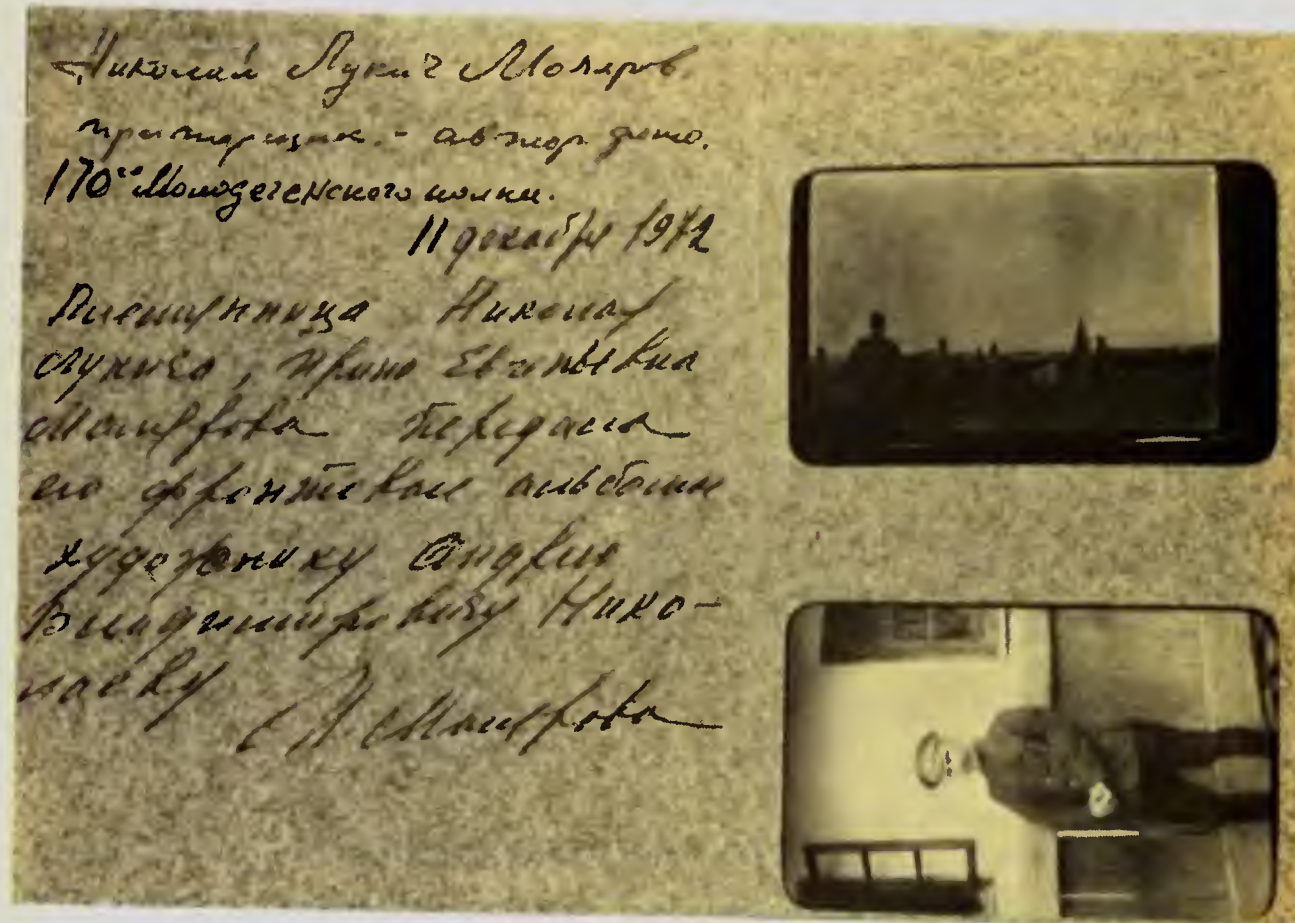 Николай Лукич Моляров
прапорщик. - автор фото.
170го Молодеченского полка.
11 декабря 1972
Племянница Николая
Лукича, Ирина Евгеньевна
Молярова передала
его фронтовой альбом
художнику Андрею
Владимировичу Нико-
лаеву
Молярова